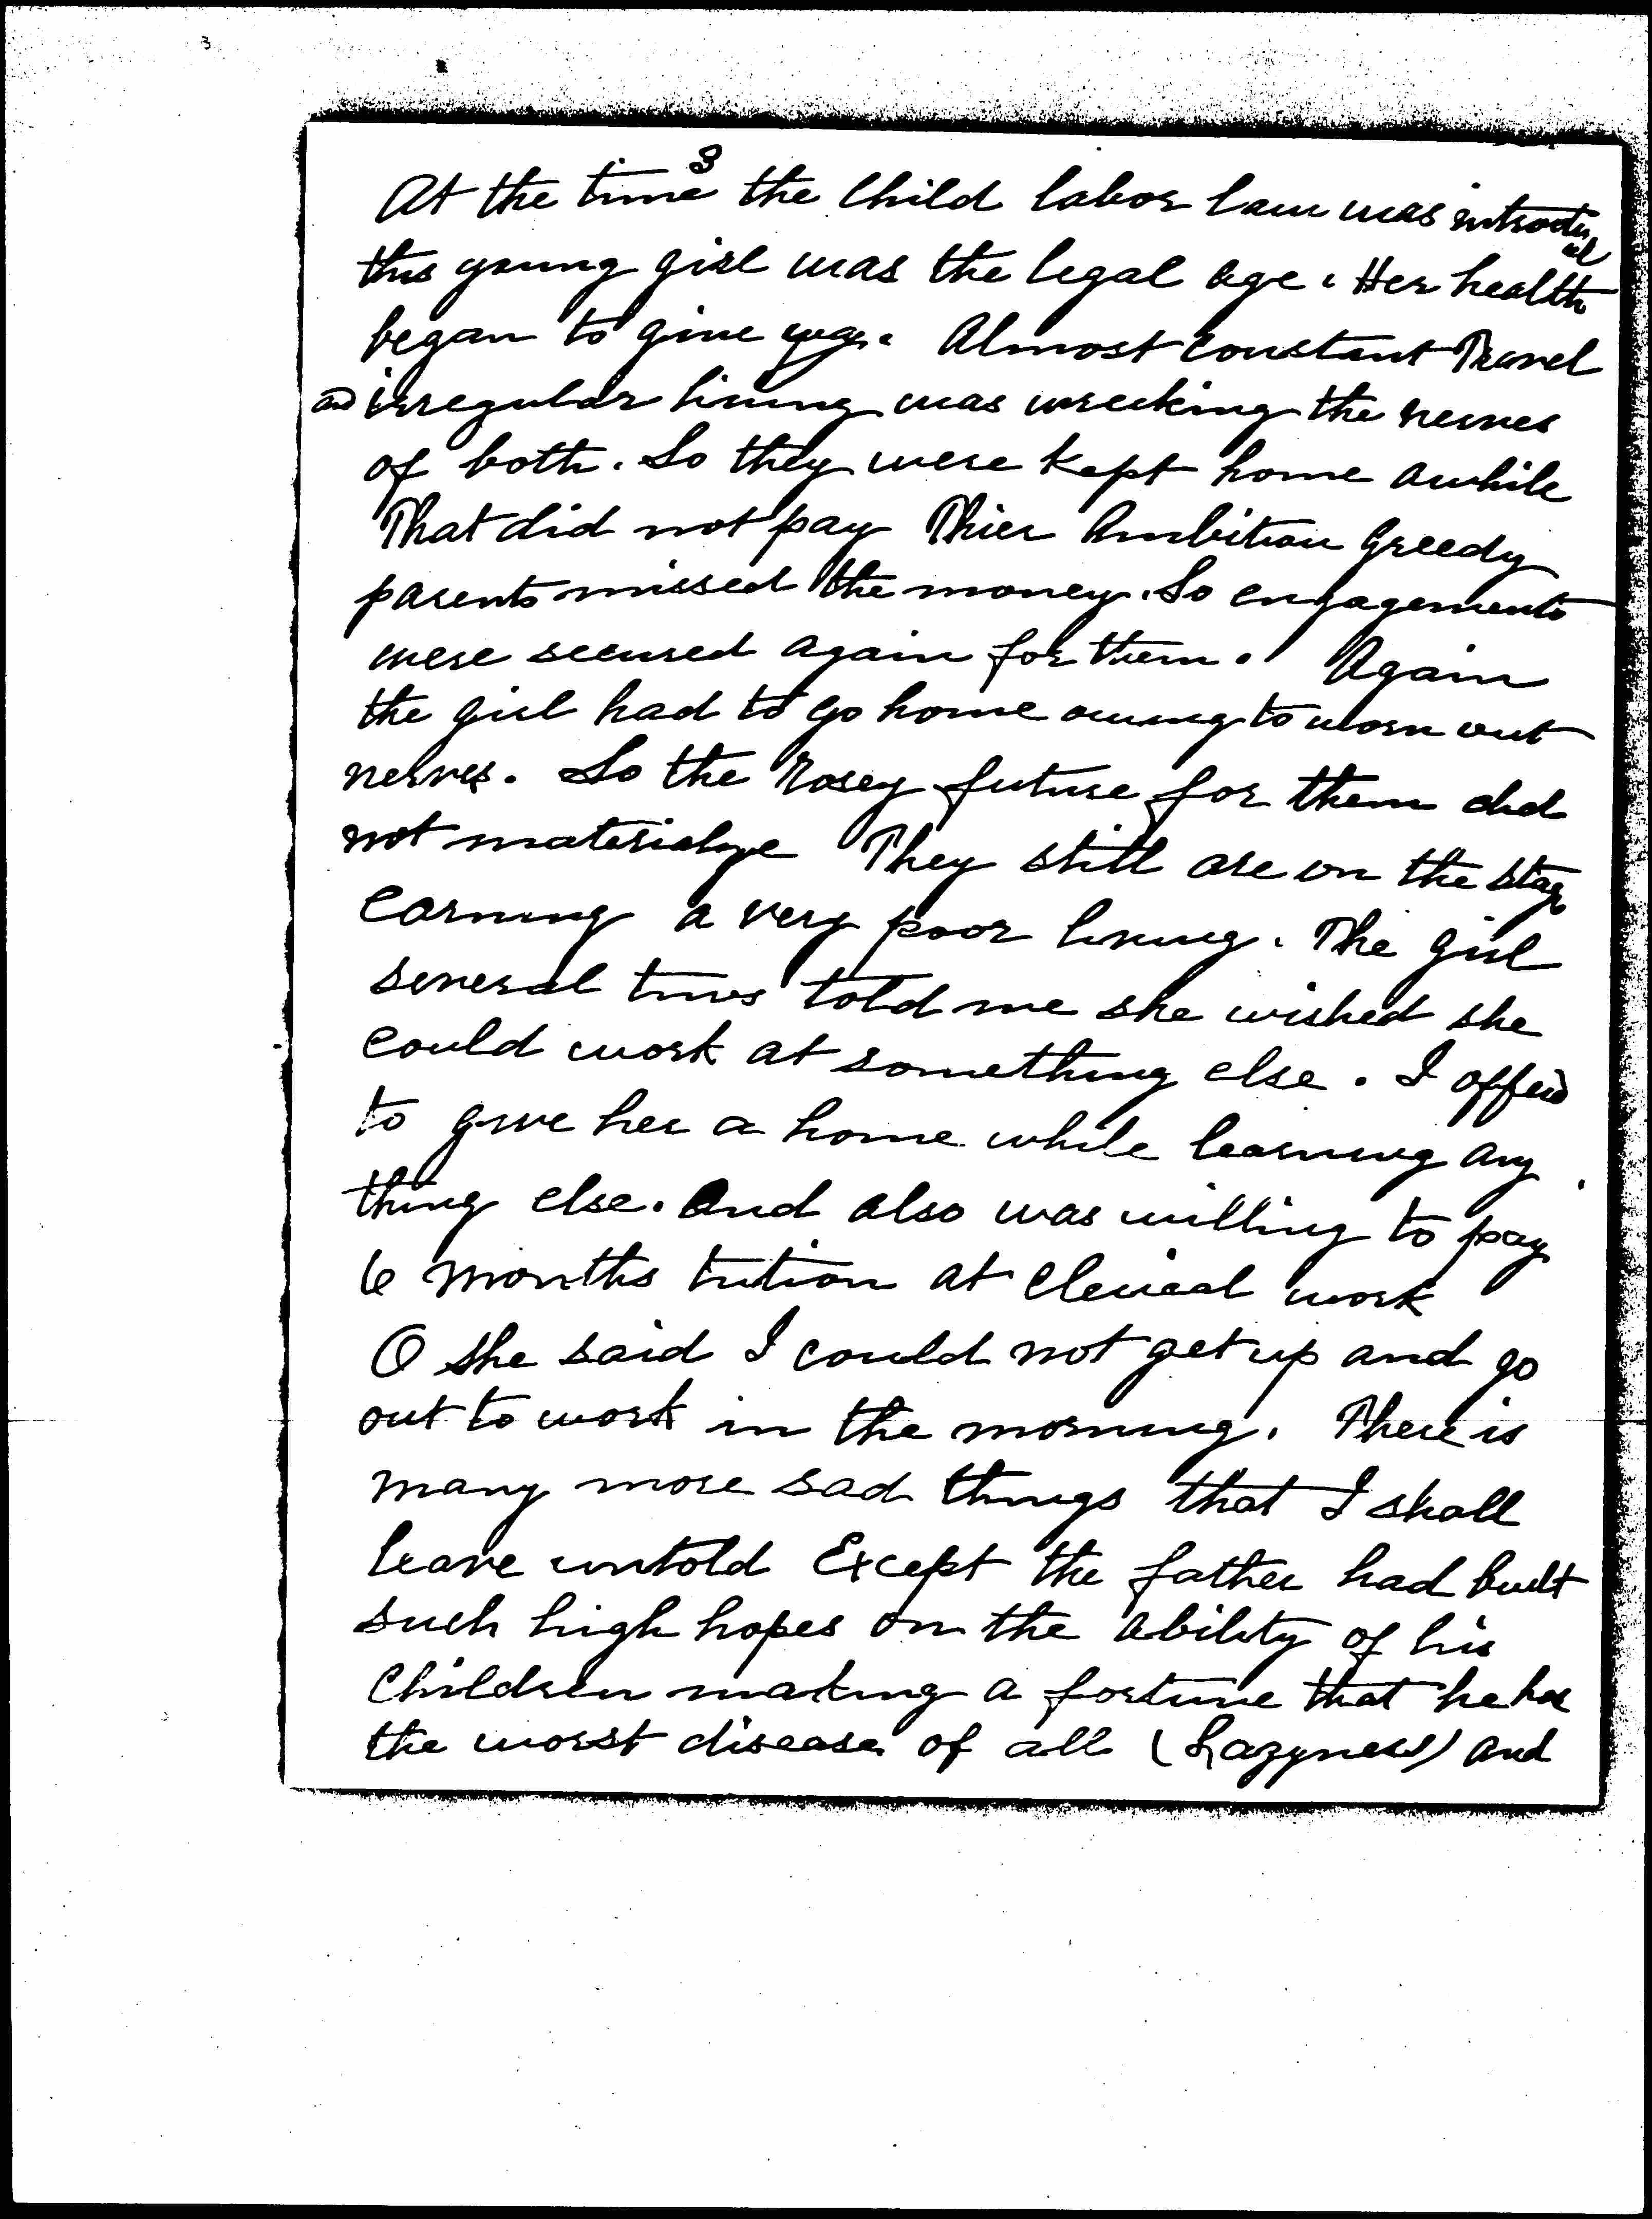 3
3
At the time the Child labor law was introduced
this young girl was the legal age. Her health
began to give way. Almost constant Travel
and irregular living was wrecking the nerves
of both. So they were kept home awhile
That did not pay Thier Ambition Greedy
parents missed the money. So engagements
were secured again for them. Again
the girl had to go home owing to worn out
nerves. So the Rosey future for them did
not materialize They still are on the stage
earning a very poor living. The girl
several times told me she wished she
could work at something else. I offerd
to give her a home while learning any
thing else. And also was willing to pay
6 months tution at Clerical work
O she said I could not get up and go
out to work in the morning. There is
many more sad things that I shall
leave untold Except the father had built
such high hopes on the ability of his
Children making a fortune that he has
the worst disease of all (Lazyness) and